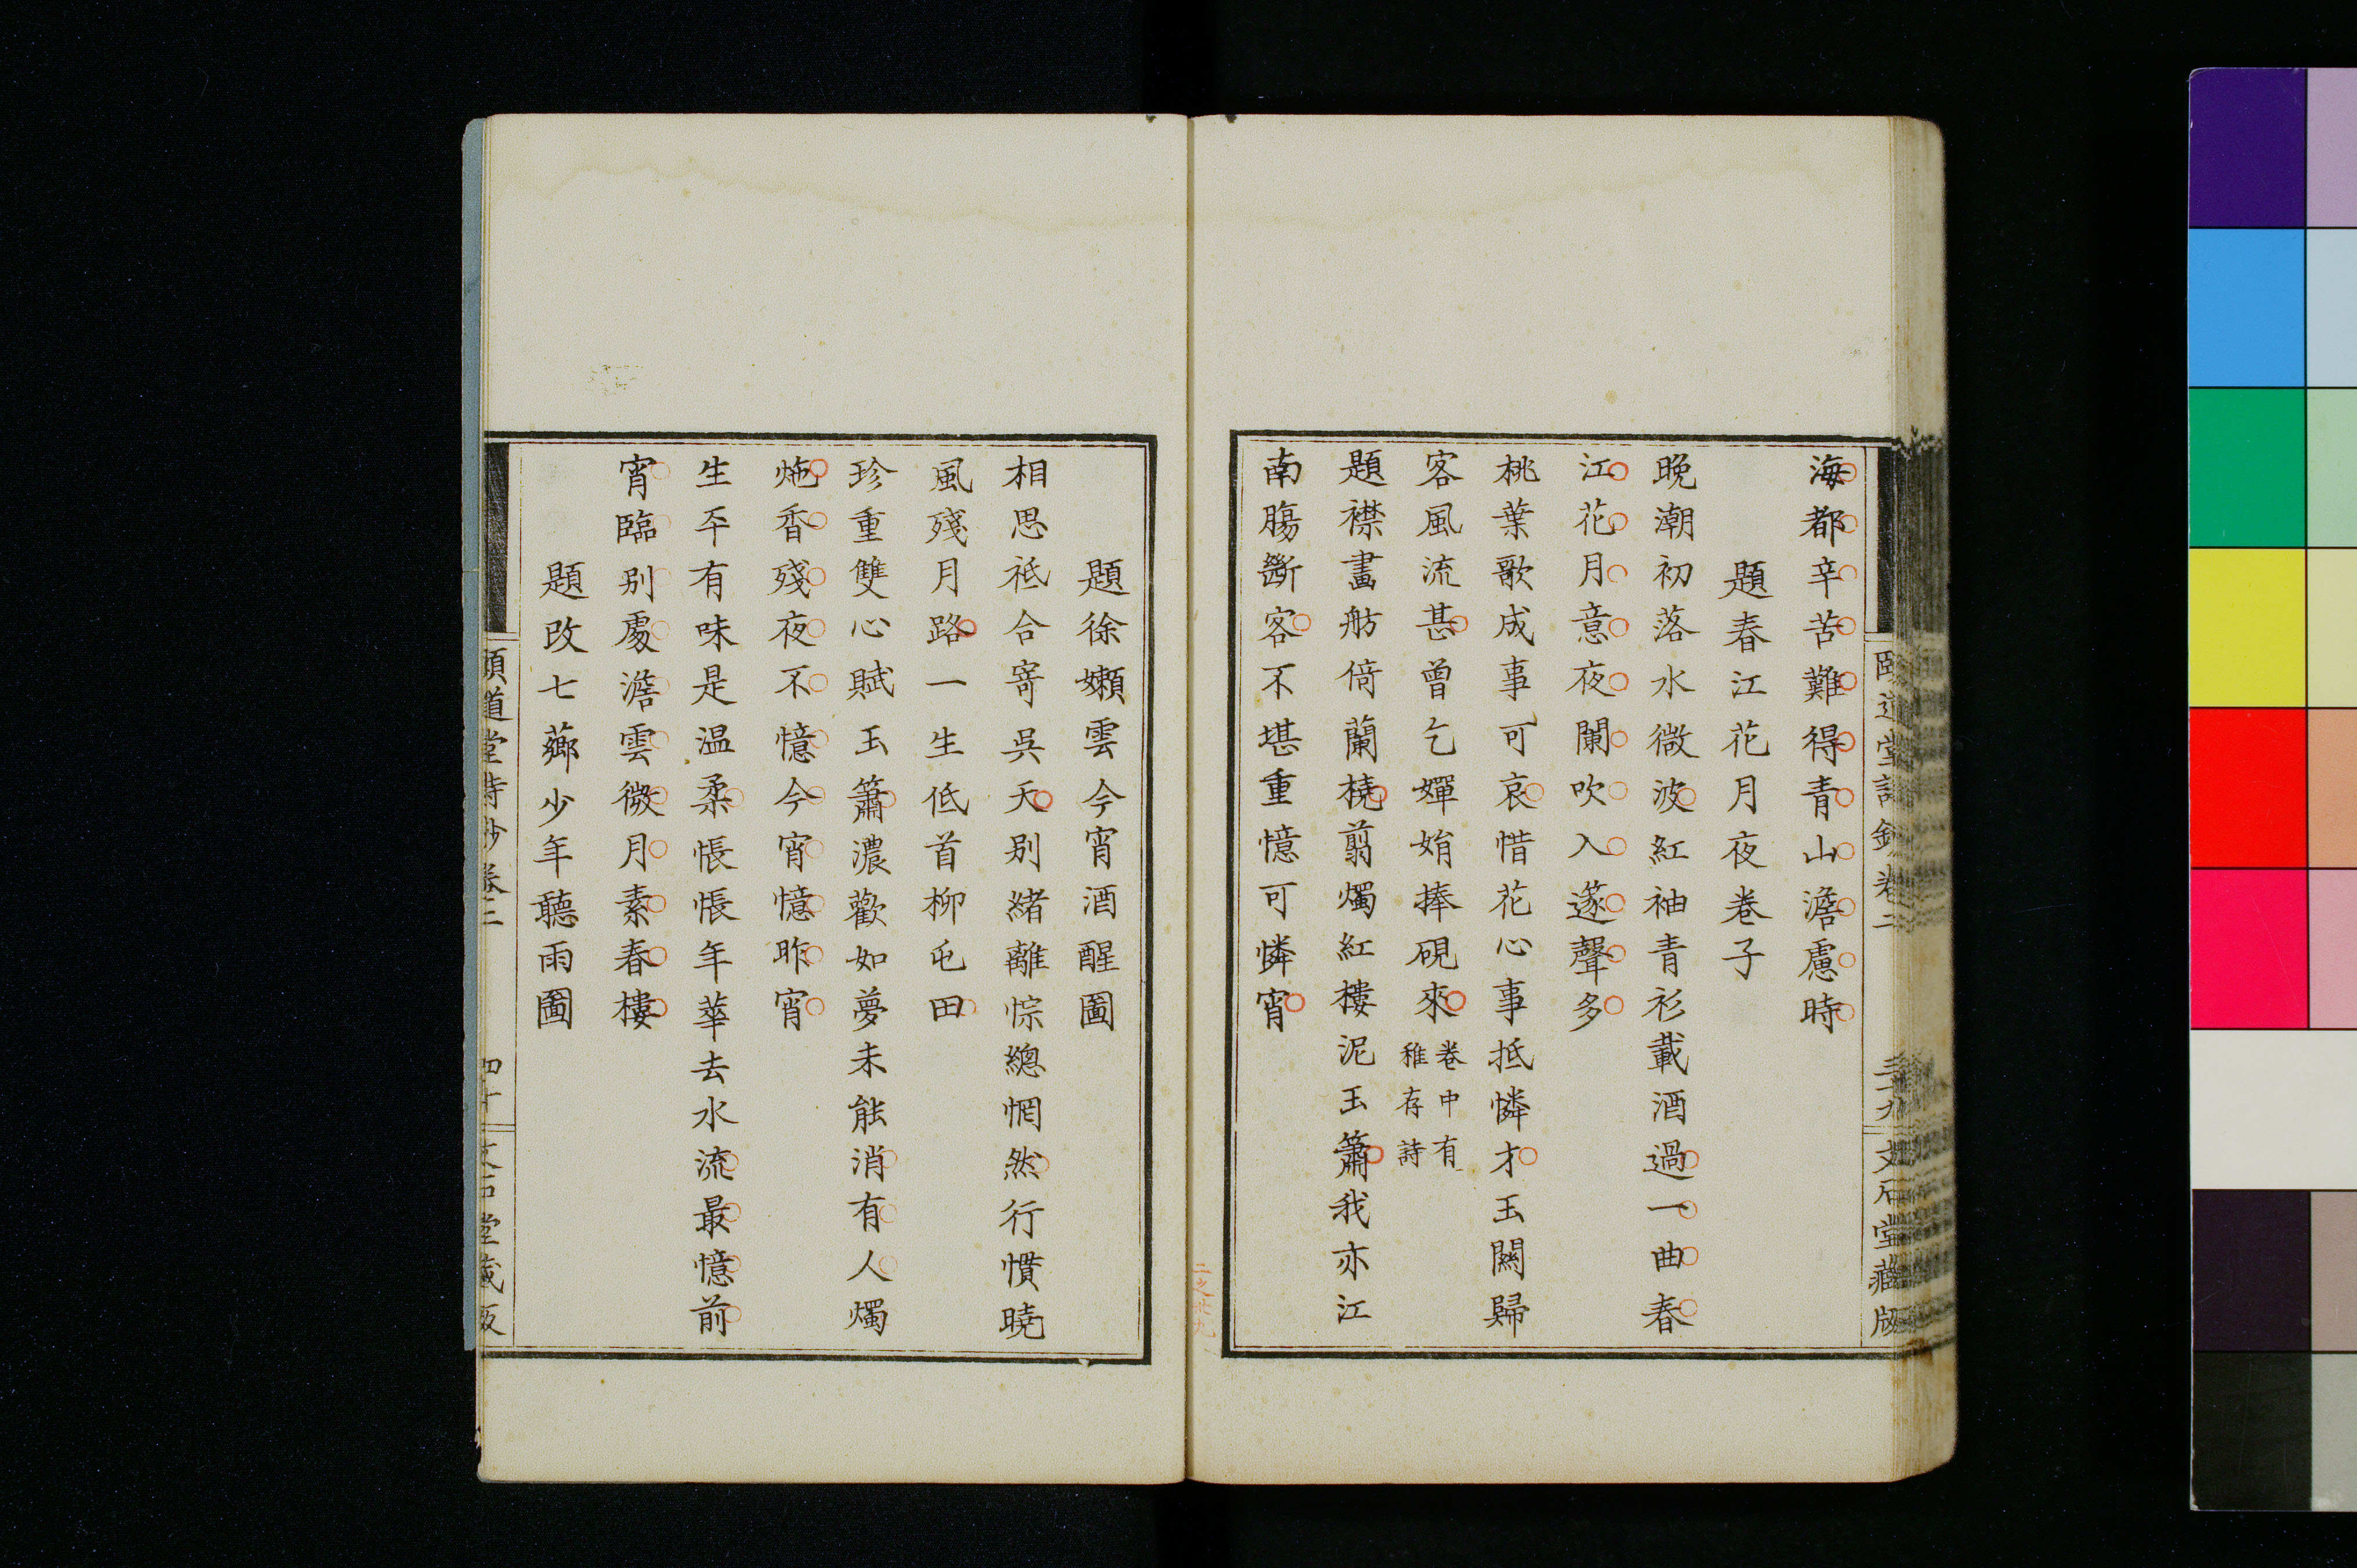 海都辛苦難得青山澹慮時
題春江花月夜卷子
晚潮初落水微波紅袖青衫載酒過一曲春
江花月意夜闌吹入篴聲多
桃葉歌成事可哀惜花心事抵憐才玉關歸
客風流甚曾乞嬋娟捧硯來
卷中有
稚存詩
題襟畫舫倚蘭橈翦燭紅樓泥玉簫我亦江
南腸斷客不堪重憶可憐宵
文石堂藏版
題徐嬾雲今宵酒醒圖
相思祗合寄吳天別緒離悰總惘然行慣曉
風殘月路一生低首柳屯田
珍重雙心賦玉簫濃歡如夢未能消有人燭
炧香殘夜不憶今宵憶昨宵
生平有味是温柔悵悵年華去水流最憶前
宵臨別處澹雲微月素春樓
題改七薌少年聽雨圖
頤道堂詩鈔卷二
四十